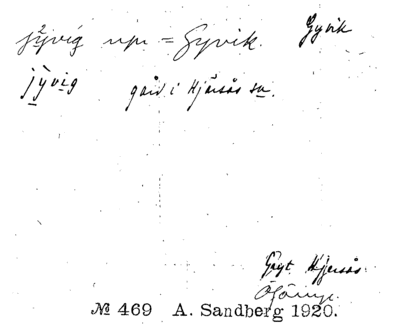 jy̲vig npr = Gyvik. Gyvik
jỳvi̲g gård i Hjärsås sn.
Gryt. Hjersås.
Ö Göinge.
№ 469 A. Sandberg 1920.